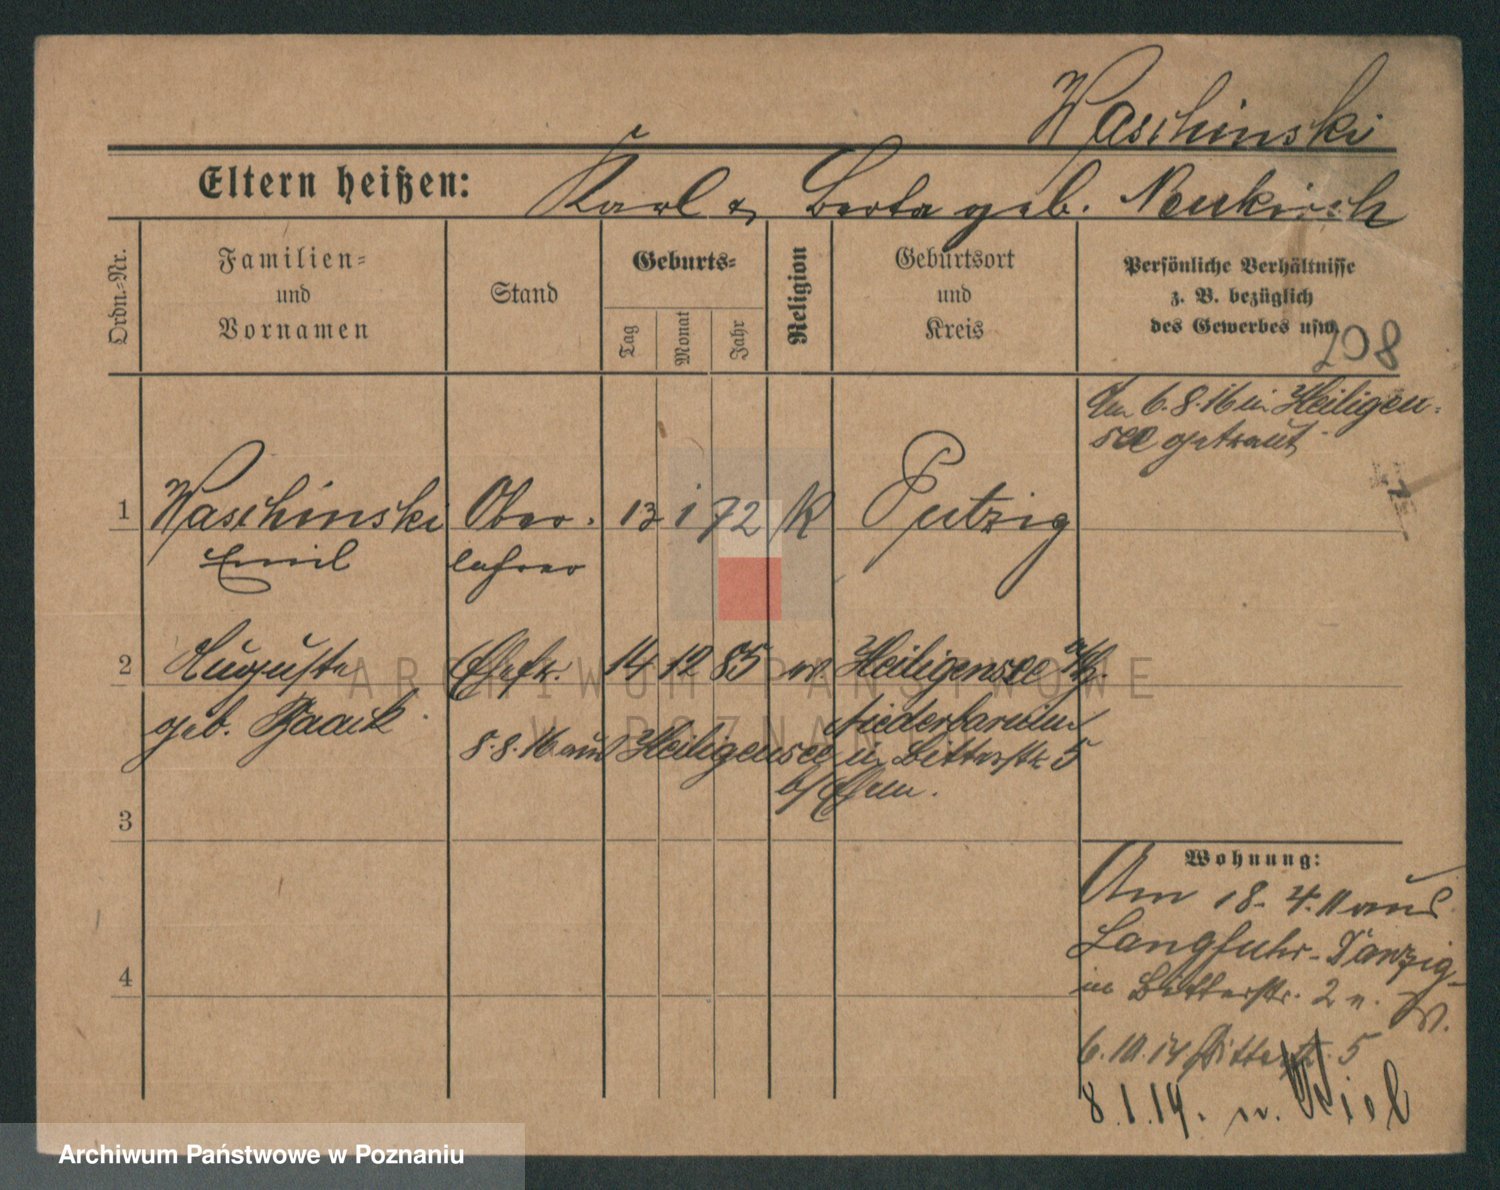 Waschinski
Eltern heißen: Karl & Berta geb. Neukirch
Ordn.-Nr.
Familien-
und
Vornamen
Stand
Geburts-
Tag
Monat
Jahr
Religion
Geburtsort
und
Kreis
Persönliche Verhältnisse
z. B. bezüglich
des Gewerbes usw.
208
Am 6.8.16 in Heiligen-
see getraut
1 Waschinski Ober- 13 1 72 K Putzig
Emil lehrer
2 Auguste Ehefr. 14 12 85 ev. Heiligensee
geb. Niederbarnim
8.8.16 aus Heiligensee n. Bitterstr. 5
b/Ehem.
3
Wohnung:
Am 18. 4. 11 aus
Langfuhr-Danzig
in Bitterstr. 2 n.
4
6.10.14 Bitterstr. 5
8.1.19. n. Kiel
ARCHIWUM PAŃSTWOWE
W POZNANIU
Archiwum Państwowe w Poznaniu